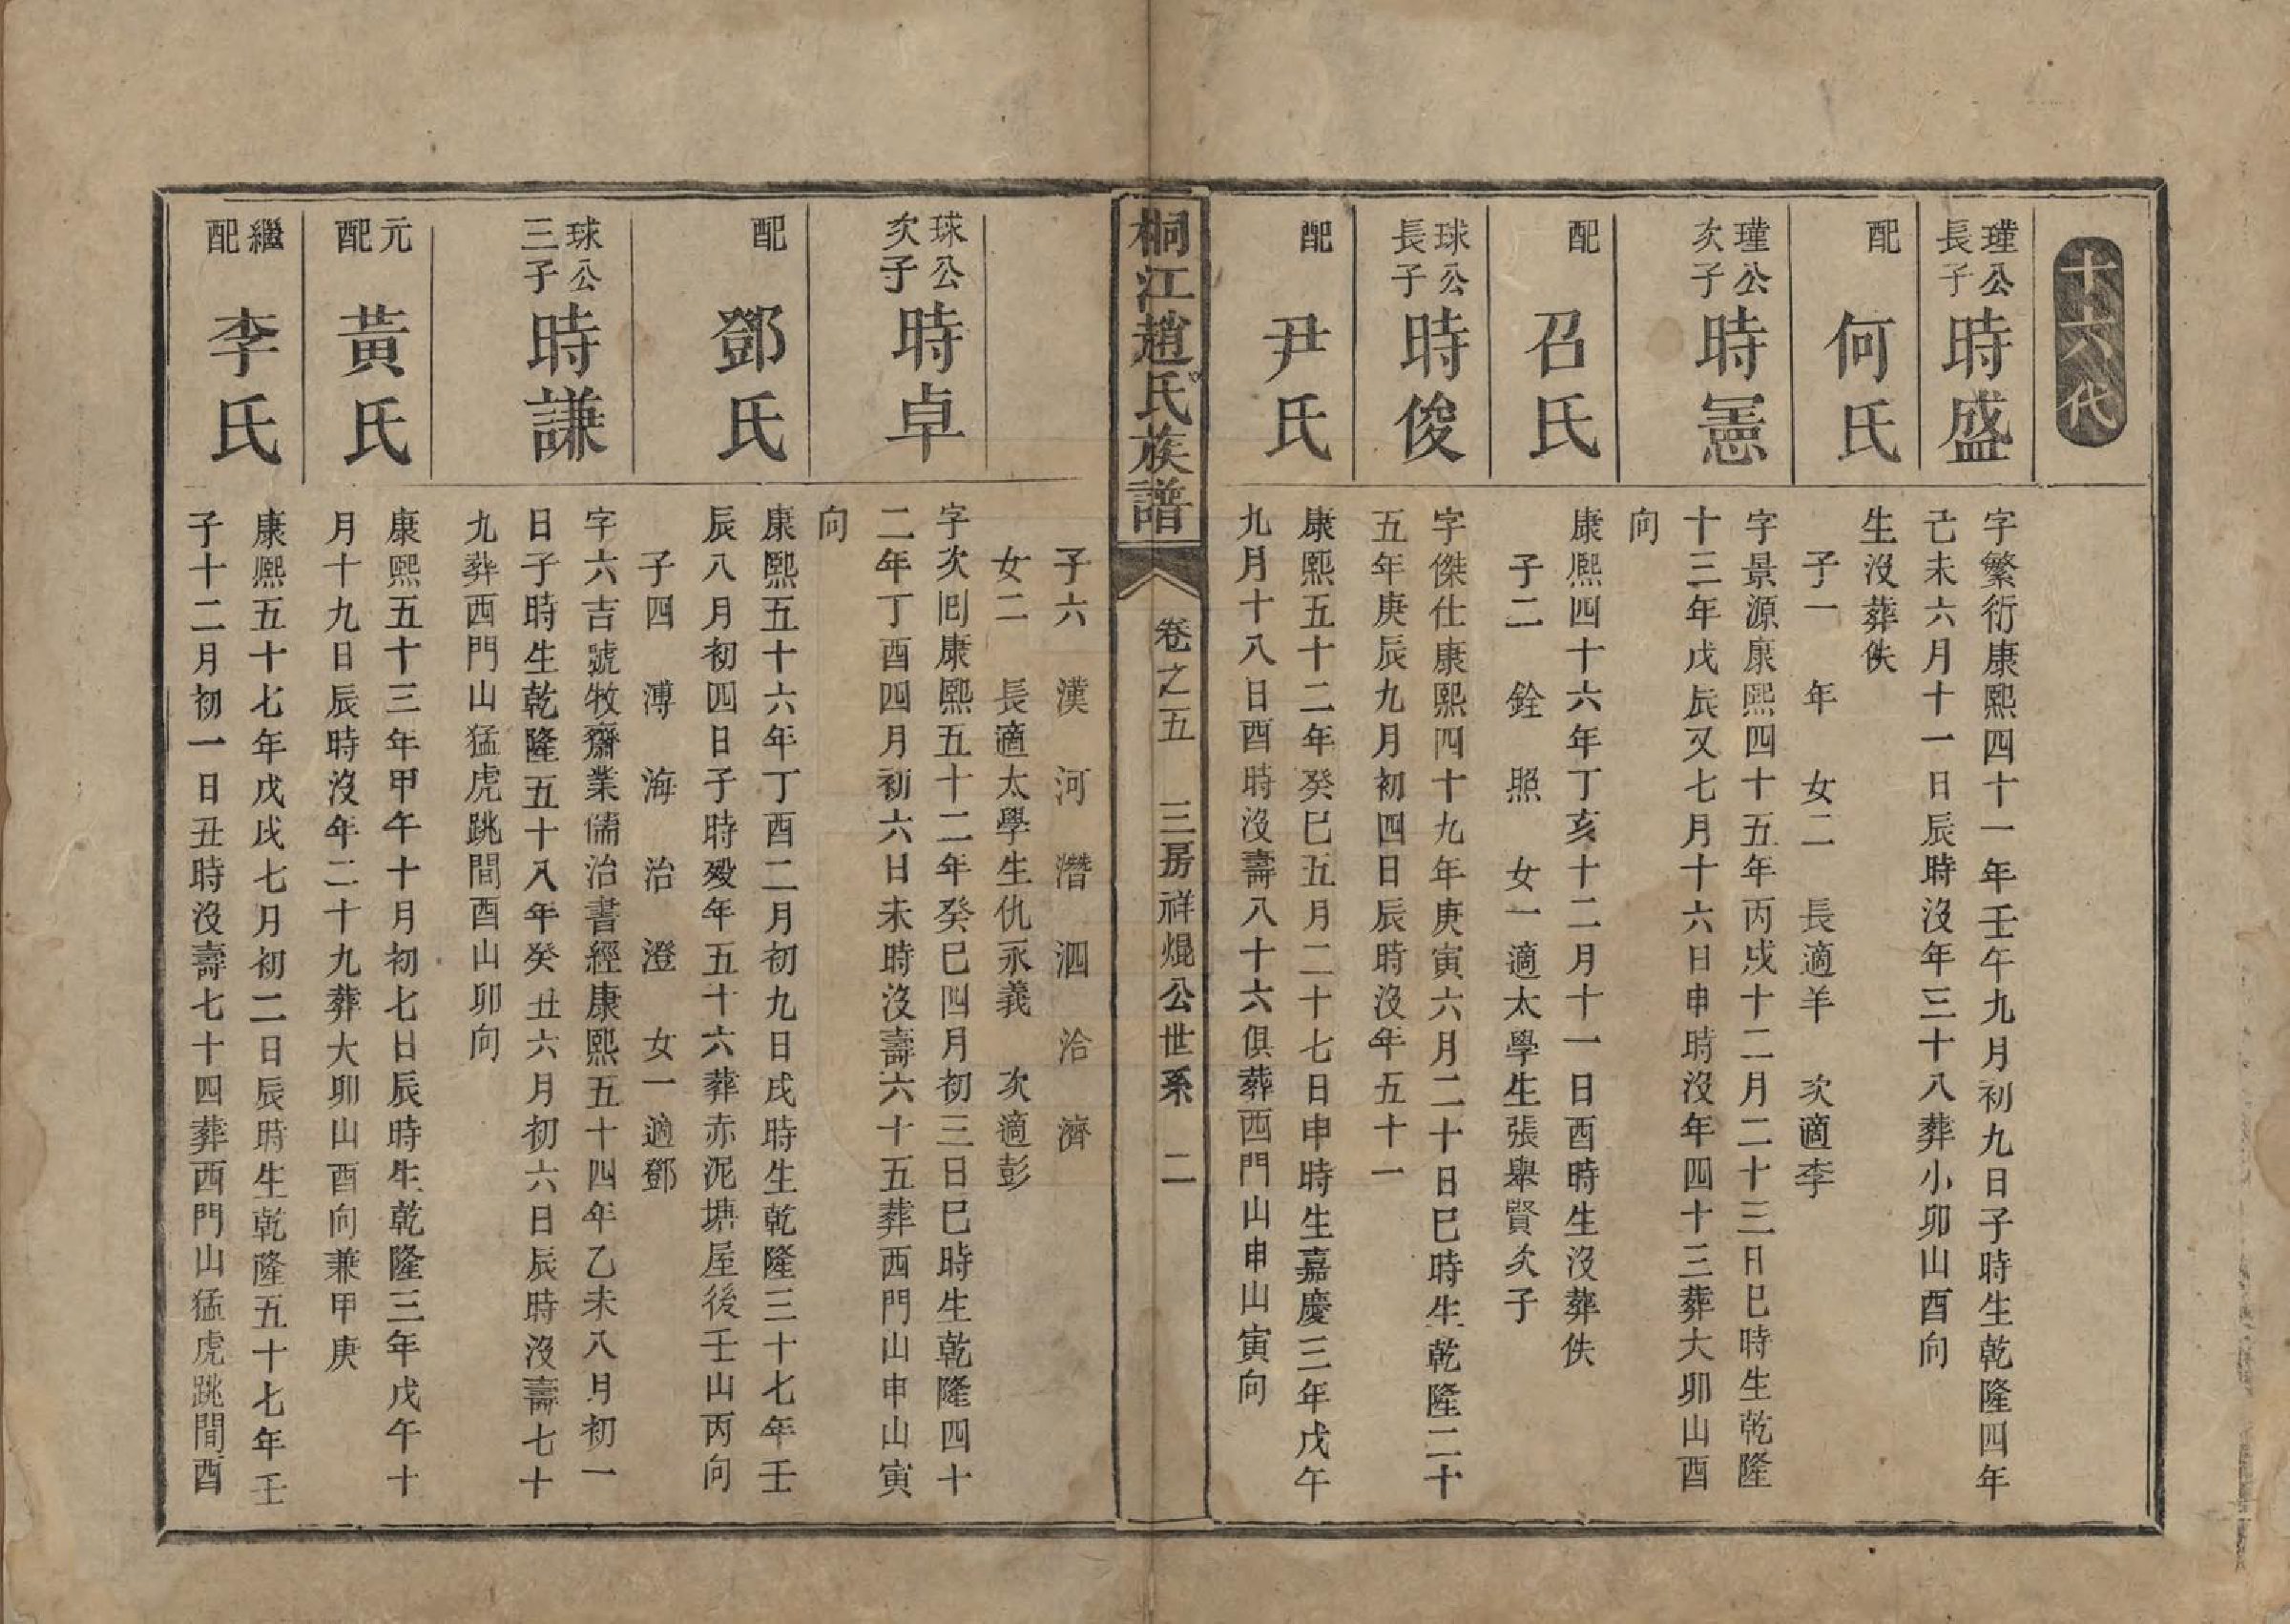 十六代
瑾公
長子
時盛
字繁衍康熙四十一年壬午九月初九日子時生乾隆四年
己未六月十一日辰時沒年三十八葬小卯山酉向
配
何氏
生沒葬佚
子一 年 女二 長適羊 次適李
瑾公
次子
時憲
字景源康熙四十五年丙戌十二月二十三日巳時生乾隆
十三年戊辰又七月十六日申時沒年四十三葬大卯山酉
向
配
召氏
康熙四十六年丁亥十二月十一日酉時生沒葬佚
子二 銓 照 女一適太學生張舉賢次子
球公
長子
時俊
字傑仕康熙四十九年庚寅六月二十日巳時生乾隆二十
五年庚辰九月初四日辰時沒年五十一
配
尹氏
康熙五十二年癸巳五月二十七日申時生嘉慶三年戊午
九月十八日酉時沒壽八十六俱葬西門山申山寅向
桐江趙氏族譜
卷之五 三房祥焜公世系 二
子六 漢 河 潛 泗 洽 濟
女二 長適太學生仇永義 次適彭
球公
次子
時卓
字次回康熙五十二年癸巳四月初三日巳時生乾隆四十
二年丁酉四月初六日未時沒壽六十五葬西門山申山寅
向
配
鄧氏
康熙五十六年丁酉二月初九日戌時生乾隆三十七年壬
辰八月初四日子時歿年五十六葬赤泥塘屋後壬山丙向
子四 溥 海 治 澄 女一適鄧
球公
三子
時謙
字六吉號牧齋業儒治書經康熙五十四年乙未八月初一
日子時生乾隆五十八年癸丑六月初六日辰時沒壽七十
九葬西門山猛虎跳間酉山卯向
元
配
黃氏
康熙五十三年甲午十月初七日辰時生乾隆三年戊午十
月十九日辰時沒年二十九葬大卯山酉向兼甲庚
繼
配
李氏
康熙五十七年戊戌七月初二日辰時生乾隆五十七年壬
子十二月初一日丑時沒壽七十四葬西門山猛虎跳間酉